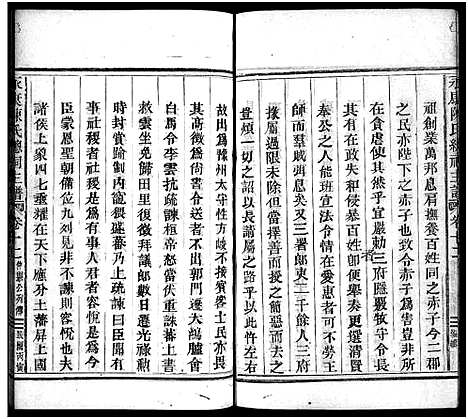 永康陳氏總祠主譜 卷十二
祖創業萬邦息肩撫養百姓同之赤子今二郡
之民亦陛下之赤子也致令赤子爲害豈非所
在貪虐使其然乎宜嚴勑三府隱覈牧守令長
其有在政失和侵暴百姓者即便舉奏更選清賢
奉公之人能班宣法令情在愛惠者可不勞王
師而羣賊弭息矣又三署郎吏二千餘人三府
掾屬過限未除但當擇善而授之簡惡而去之
豈煩一切之詔以長請屬之路乎以此忤左右
故出爲豫州太守性方峻不接賓客士民亦畏
其高徵爲尚書令送者不出郭門遷大鴻臚會
白馬令李雲抗疏諫桓帝怒當伏重誅蕃上書
救雲坐免歸田里復徵拜議郎數日遷光祿勳
時封賞踰制內寵猥盛蕃乃上疏諫曰臣聞有
事社稷者社稷是爲有事人君者容悅是爲今
臣蒙恩聖朝備位九列見非不諫則容悅也夫
諸侯上象四七垂耀在天下應分土藩屏上國
永康陳氏總祠主譜 卷十二